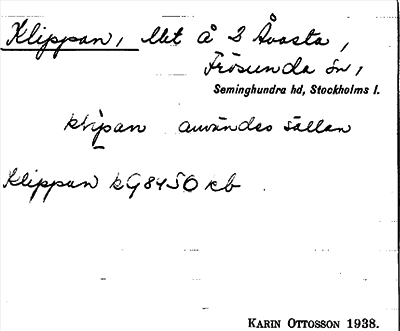 Klippan, lht å 2 Åvasta,
Frösunda sn,
Seminghundra hd, Stockholms l.
klipan användes sällan
Klippan kG8450 kb
KARIN OTTOSSON 1938.